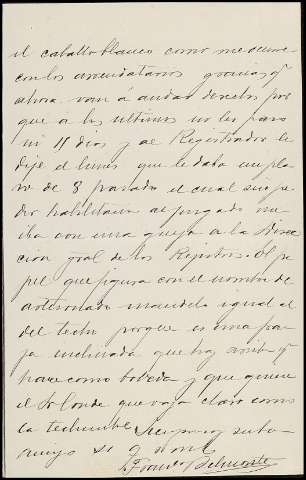 el caballo blanco como me ocurre
con los arrendatarios gracias q.e
ahora van á andar derechos por
que a los ultimos no les paso
ni 11 dias y al Registrador le
dije el lunes que le daba un pla
zo de 8 pasado el cual sin po
der habilitar al juzgado me
iba con una queja a la Direc
cion gral de los Registros. El pa
pel que figura con el nombre de
artesonado mandelo igual al
del techo porque es una fa
ja inclinada que hay arriba q.e
hace como boveda y que quiere
el Sr Conde que vaya claro como
la techumbre
suyo
Belmonte